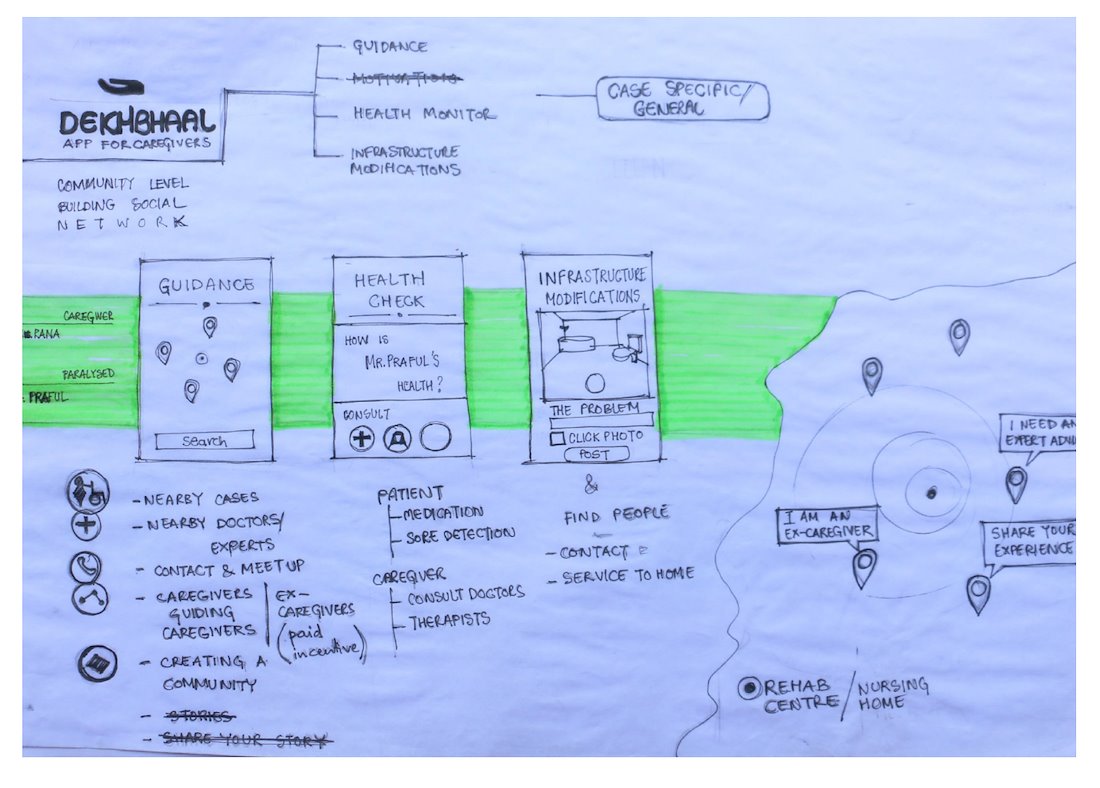 DEKHBHAAL
APP FOR CAREGIVERS
COMMUNITY LEVEL
BUILDING SOCIAL
NETWORK
GUIDANCE
MOTIVATIONS
HEALTH MONITOR
INFRASTRUCTURE
MODIFICATIONS
CASE SPECIFIC/
GENERAL
CAREGIVER
RANA
PARALYSED
PRAFUL
GUIDANCE
Search
HEALTH
CHECK
HOW IS
MR. PRAFUL'S
HEALTH?
CONSULT
INFRASTRUCTURE
MODIFICATIONS
THE PROBLEM
CLICK PHOTO
POST
- NEARBY CASES
- NEARBY DOCTORS/
EXPERTS
- CONTACT & MEETUP
- CAREGIVERS
GUIDING
CAREGIVERS
EX-
CAREGIVERS
(paid
incentive)
- CREATING A
COMMUNITY
- STORIES
- SHARE YOUR STORY
PATIENT
- MEDICATION
- SORE DETECTION
CAREGIVER
- CONSULT DOCTORS
- THERAPISTS
&
FIND PEOPLE
- CONTACT
- SERVICE TO HOME
I NEED AN
EXPERT
I AM AN
EX-CAREGIVER
SHARE YOUR
EXPERIENCE
REHAB
CENTRE / NURSING
HOME